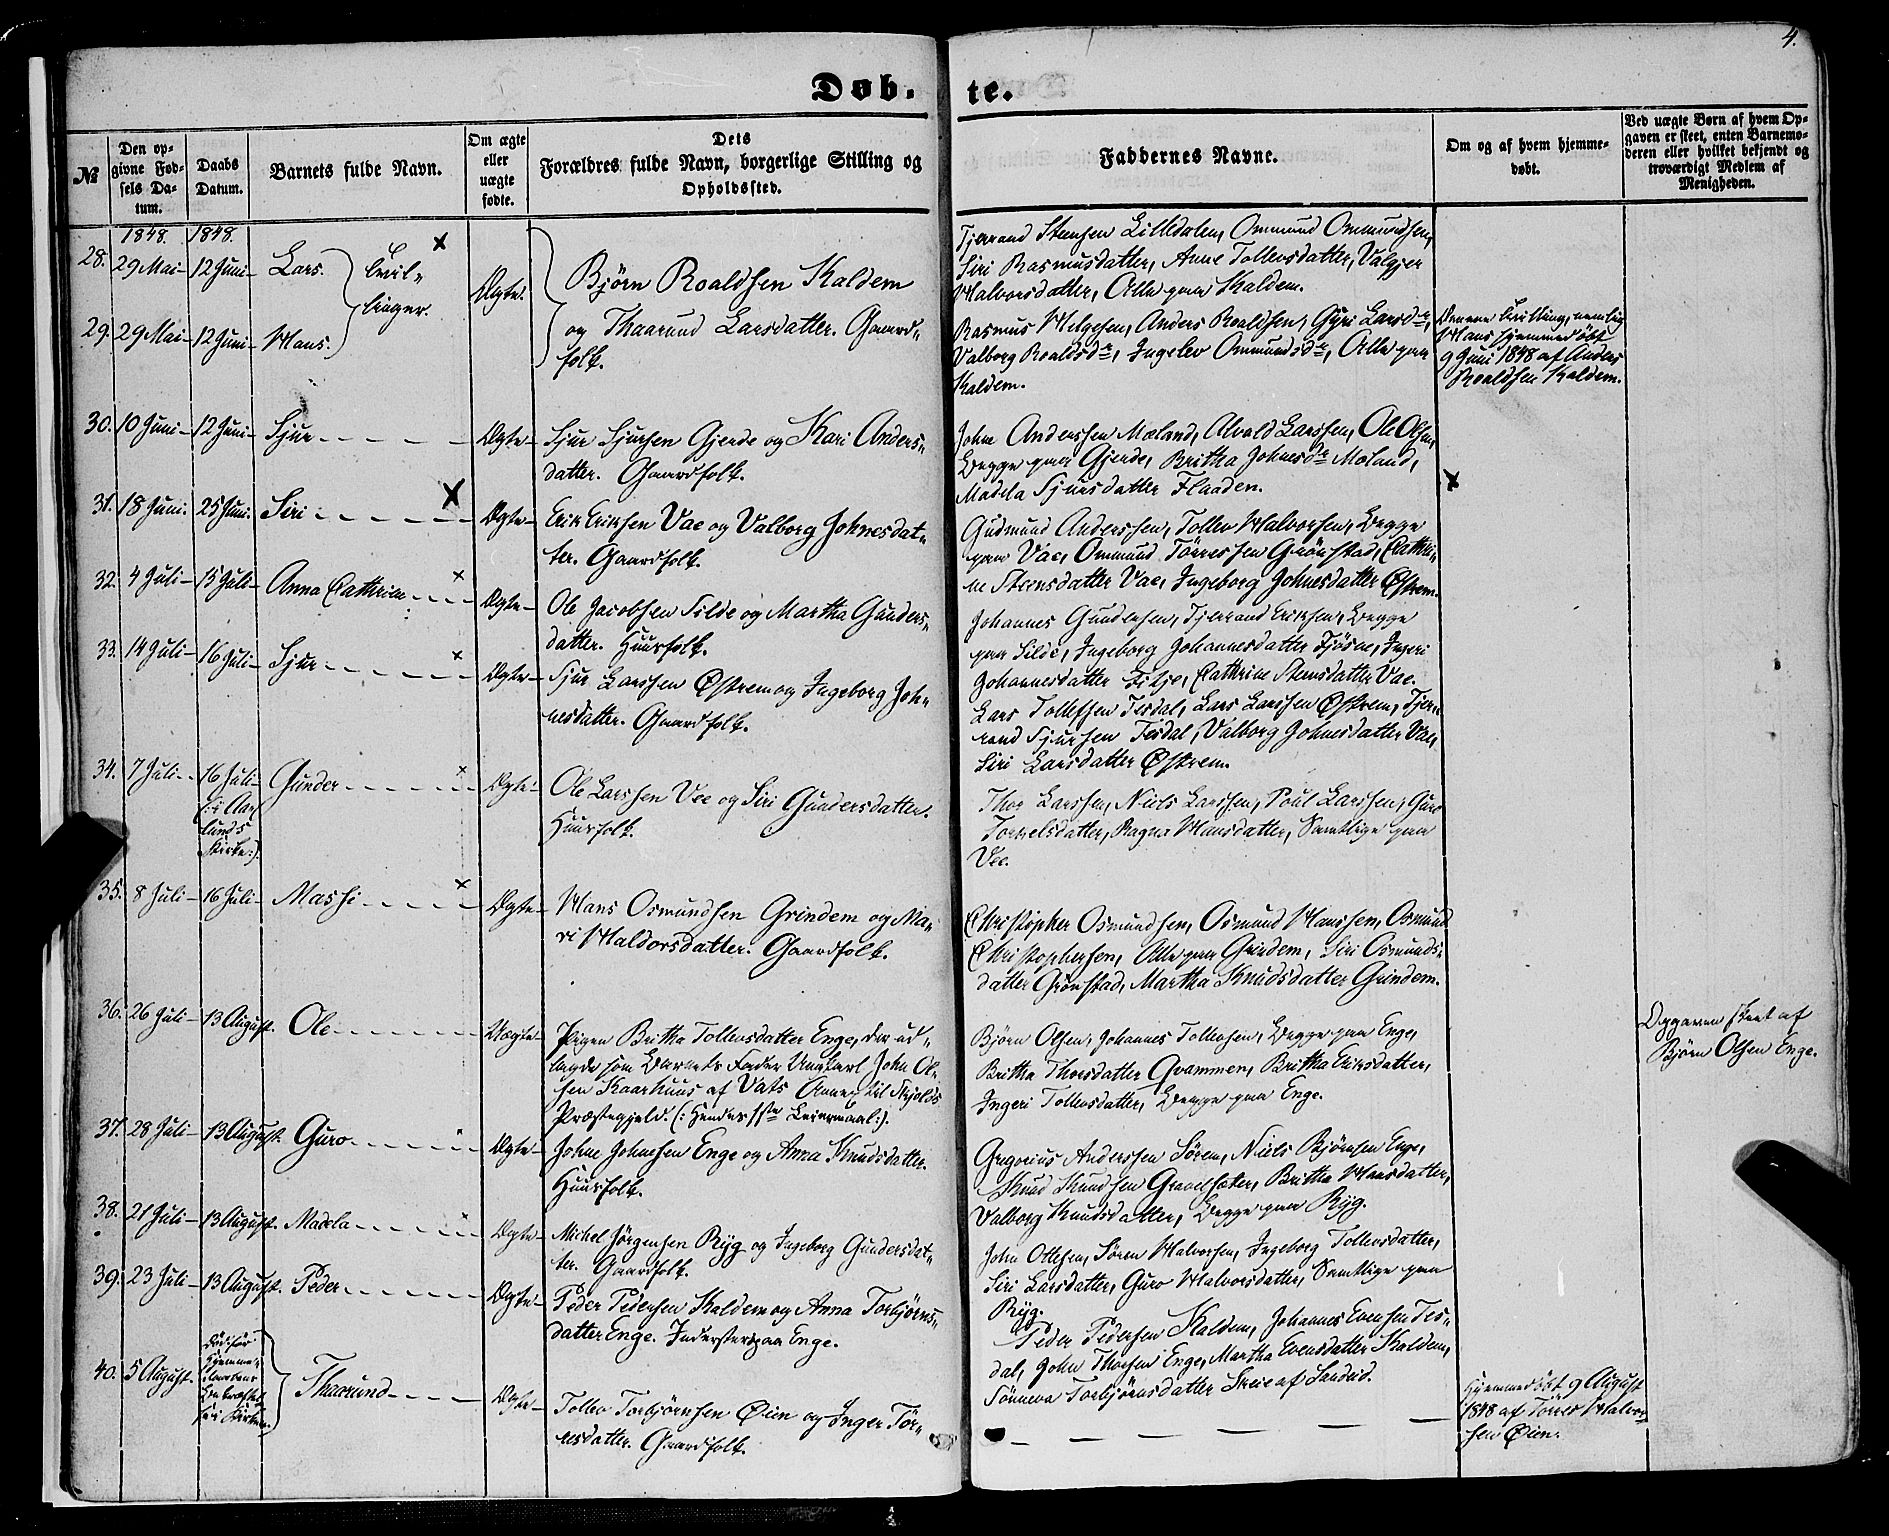 4.
Døb-te.
№
Den opgivne Fødsels Datum.
Daabs Datum.
Barnets fulde Navn.
Om ægte eller uægte fødte.
Dets Forældres fulde Navn, borgerlige Stilling og Opholdssted.
Faddernes Navne.
Om og af hvem hjemmedøbt.
Ved uægte Børn af hvem Opgaven er skeet, enten Barnemoderen eller hvilket bekjendt og troværdigt Medlem af Menigheden.
1848. 1848.
28. 29 Mai 12 Juni Lars. Tvil-
linger. Ægte.
Bjørn Roaldsen Kaldem
Tjerrand Steensen Lilledalen, Ommund Ommundsen,
Siri Rasmusdatter, Anne Tollevsdatter, Valgjer
Halvorsdatter, Alle paa Kaldem.
29. 29 Mai 12 Juni Hans.
og Thaarund Larsdatter. Gaard-
folk.
Rasmus Helgesen, Anders Roaldsen, Gyri Larsdr,
Valborg Roaldsdr, Ingelev Ommundsdr, Alle paa
Kaldem.
Denne Tvilling, nemlig
Hans hjemmedöbt
9 Juni 1848 af Anders
Roaldsen Kaldem.
30. 10 Juni 12 Juni Sjur Ægte
Sjur Sjursen Gjerde og Kari Anders-
datter. Gaardfolk.
John Anderssen Mæland, Alvald Larssen, Ole Olsen,
Begge paa Gjerde, Britha Johnesdr Mæland,
Madela Sjursdatter Flaaden.
31. 18 Juni. 25 Juni. Siri Ægte
Erik Eriksen Vae og Valborg Johnesdat-
ter. Gaardfolk.
Gudmund Anderssen, Tollev Halvorsen, Begge
paa Vae, Ommund Törressen Grönstad, Cathri-
ne Steensdatter Vae, Ingeborg Johnesdatter Østrem.
32. 4 Juli 15 Juli Anna Cathrine Ægte
Ole Jacobsen Silde og Martha Gunders-
datter. Huusfolk.
Johannes Gundersen, Tjerrand Eriksen, Begge
paa Silde, Ingeborg Johannesdatter Fjösne, Ingeri
Johannesdatter Fitje, Cathrine Steensdatter Vae.
33. 14 Juli 16 Juli Sjur Ægte
Sjur Larssen Østrem og Ingeborg Joh-
nesdatter. Gaardfolk.
Lars Tollefsen Tesdal, Lars Larssen Østrem, Tjer-
rand Sjursen Tesdal, Valborg Johnesdatter Vae,
Siri Larsdatter Østrem.
34. 7 Juli 16 Juli
(: i Aar-
lunds
Kirke:). Gunder Ægte
Ole Larssen Vee og Siri Gundersdatter.
Huusfolk.
Thor Larssen, Niels Larssen, Poul Larssen, Guro
Torkelsdatter, Ragna Hansdatter, Samtlige paa
Vee.
35. 8 Juli 16 Juli Massi Ægte
Hans Osmundsen Grindem og Ma-
ri Haldorsdatter. Gaardfolk.
Christopher Osmundsen, Osmund Hanssen, Osmund
Christophersen, Alle paa Grindem, Siri Osmunds-
datter Grönstad, Martha Knudsdatter Grindem.
36. 26 Juli 13 August. Ole Uægte
Pigen Britha Tollevsdatter Enge, der ud-
lagde som Barnets Fader Ungkarl John Ol-
sen Kaarhuus af Vats Annex til Skjolds
Præstegjeld. (: Hendes 1ste Leiermaal:).
Bjørn Olsen, Johannes Tollevsen, Begge paa Enge,
Britha Thorsdatter Qvammen, Britha Eriksdatter,
Ingeri Tollevsdatter, Begge paa Enge.
Opgaven skeet af
Bjørn Olsen Enge.
37. 28 Juli 13 August. Guro Ægte
Johne Johnesen Enge og Anna Knudsdatter.
Huusfolk.
Gregorius Anderssen Sören, Niels Bjørnsen Enge,
Knud Knudsen Gravelsæter, Britha Hansdatter,
Valborg Knudsdatter, Begge paa Ryg.
38. 21 Juli 13 August. Madela Ægte
Michel Jörgensen Ryg og Ingeborg Gundersdat-
ter. Gaardfolk.
John Ottesen, Sören Halvorsen, Ingeborg Tollevsdatter,
Siri Larsdatter, Guro Halvorsdatter, Samtlige paa
Ryg.
39. 23 Juli 13 August. Peder Ægte
Peder Pedersen Kaldem og Anna Torbjørns-
datter Enge. Inderster paa Enge.
Peder Pedersen Kaldem, Johannes Evensen Tes-
dal, John Thorsen Enge, Martha Evensdatter Kaldem,
Tönneva Torbjørnsdatter Skeie af Sandeid.
40. 5 August. Død før
Hjemme-
daaben
bekræftet
i Kirken. Thaarund Ægte
Tollev Torbjørnsen Øien og Inger Tör-
resdatter. Gaardfolk.
Hjemmedöbt 9 August
1848 af Törres Halvor-
sen Øien.